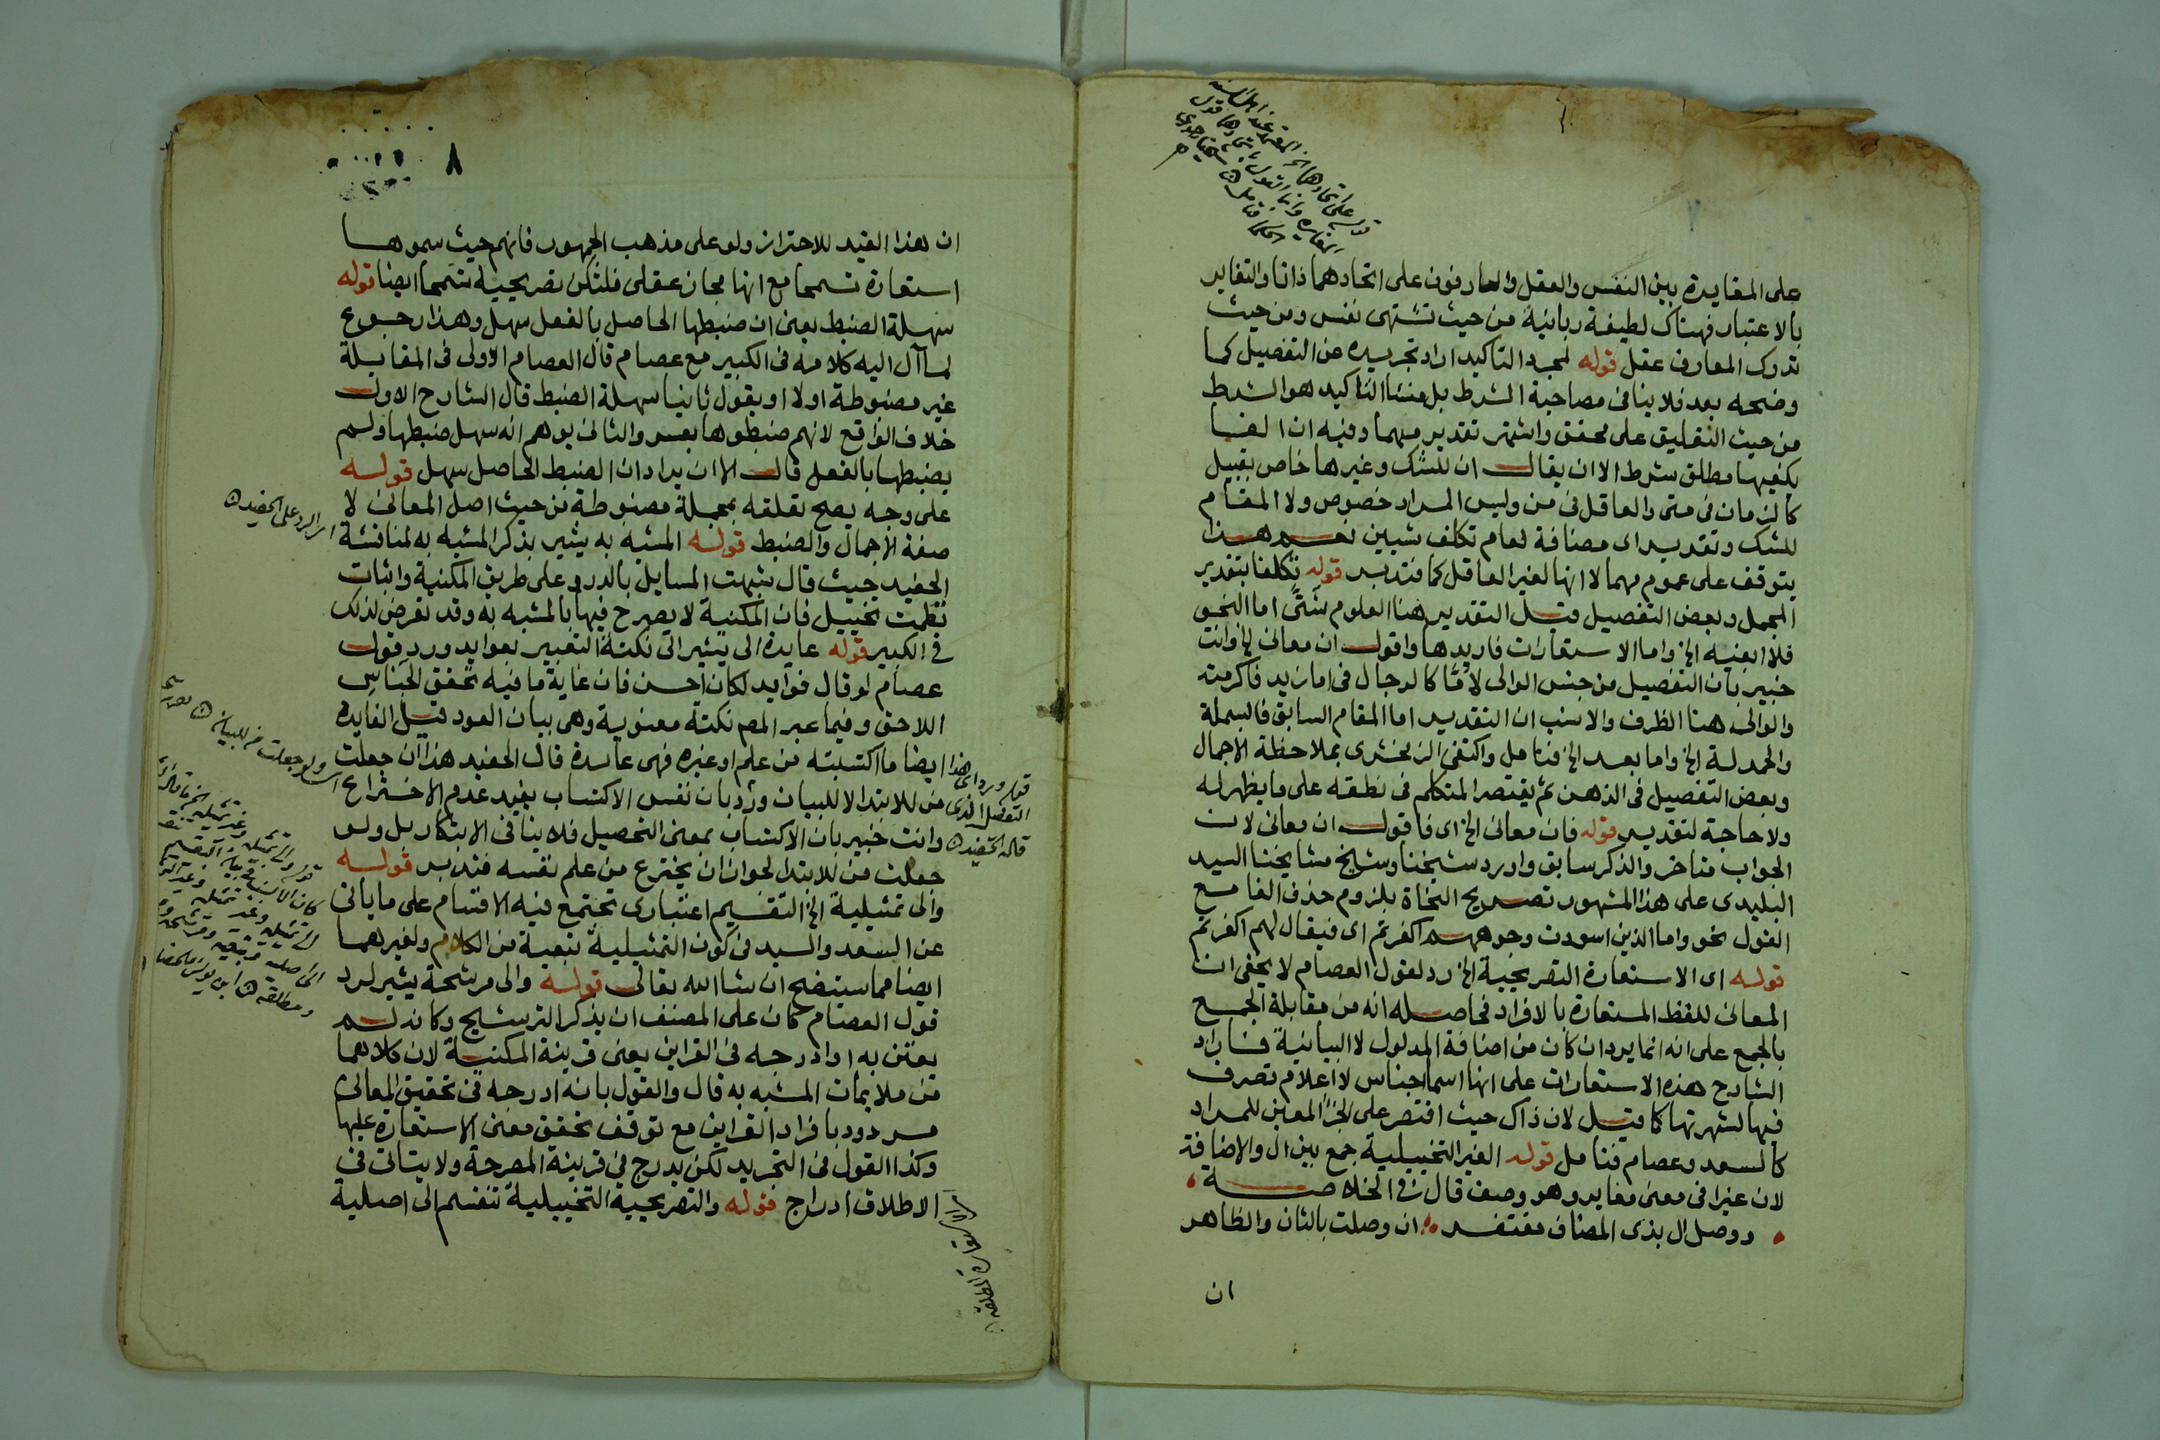 على المغايرة بين النفس والعقل والعارفون على اتحادهما ذاتا والتغاير
بالاعتبار فهناك لطيفة ربانية من حيث تشتهى نفس ومن حيث
تدرك المعارف عقل قوله لمجرد التاكيد اراد تجريده عن التفصيل كما
وضحه بعد فلا ينافى مصاحبة الشرط بل منشا التاكيد هو الشرط
من حيث التعليق على محقق واشتهر تقدير مهما وفيه ان الفا
يكفيها مطلق شرط الا ان يقال ان للشك وغيرها خاص بقبيل
كالزمان فى متى والعاقل فى من وليس المراد خصوص ولا المقام
للشك وتقدير اى مضافة لعام تكلف شيين نعم هذا
يتوقف على عموم مهما لا انها لغير العاقل كما فتدبر قوله تكلفنا بتقدير
المجمل وبعض التفصيل قبل التقدير هنا العلوم شتى اما النحو
فلا اعنيه الخ واما الاستعارات فاريدها واقول ان معانى الخ وانت
خبير بان التفصيل من جنس الوالى لاما كالرجال فى اما زيد فاكرمته
والوالى هنا الظرف والانسب ان التقدير اما المقام السابق فالبسملة
والحمدلة الخ واما بعد الخ فتامل واكتفى الزمخشرى بملاحظة الاجمال
وبعض التفصيل فى الذهن ثم يقتصر المتكلم فى نطقه على ما يظهر له
ولا حاجة لتقدير قوله فان معانى الخ اى فاقول ان معانى لان
الجواب متاخر والذكر سابق واورد شيخنا وشيخ مشايخنا السيد
البليدى على هذا المشهور تصريح النحاة بلزوم حذف الفا مع
القول نحو واما الذين اسودت وجوههم اكفرتم اى فيقال لهم اكفرتم
قوله اى الاستعارة التصريحية الخ رد لقول العصام لا يخفى ان
المعانى للفظ المستعارة بالافراد فحاصله انه من مقابلة الجمع
بالجمع على انه انما يرد ان كان من اضافة المدلول لا البيانية فاراد
الشارح هذه الاستعارات على انها اسما اجناس لا اعلام تصرف
فيها لشهرتها كما قيل لان ذاك حيث اقتصر على الجزأ المعين للمراد
كالسعد وعصام فتامل قوله الغير التخييلية جمع بين ال والاضافة
لان غيرا فى معنى مغاير وهو وصف قال فى الخلاصة
ووصل ال بذى المضاف مغتفر ان وصلت بالثان والظاهر
ان
٨
ان هذا القيد للاحتراز ولو على مذهب الجمهور فانهم حيث سموها
استعارة تسمحا مع انها مجاز عقلى فلتكن تصريحية تسمحا ايضا قوله
سهلة الضبط يعنى ان ضبطها الحاصل بالفعل سهل وهذا رجوع
لما آل اليه كلامه فى الكبير مع عصام قال العصام الاولى فى المقابلة
غير مضبوطة اولا او يقول ثانيا سهلة الضبط قال الشارح الاول
خلاف الواقع لانهم ضبطوها بعسر والثانى يوهم انه سهل ضبطها ولم
يضبطها بالفعل قال الا ان يراد ان الضبط الحاصل سهل قوله
على وجه يصح تعلقه بمجملة مضبوطة من حيث اصل المعانى لا
صفة الاجمال والضبط قوله المشبه به يشير بذكر المشبه به لمناقشة
الحفيد حيث قال شبهت المسايل بالدرر على طريق المكنية واثبات
نظمت تخييل فان المكنية لا يصرح فيها بالمشبه به وقد تعرض لذلك
فى الكبير قوله عايدة الى يشير الى نكتة التعبير بعوايد ورد قول
عصام لو قال فوايد لكان احسن فان غاية ما فيه تحقق الجناس
اللاحق وفيما عبر المص نكتة معنوية وهى بيان العود قيل الفايدة
ايضا ما اكتسبته من علم او غيره فهى عايدة قال الحفيد هذا ان جعلت
من للابتدا لا للبيان ورد بان نفس الاكتساب يفيد عدم الاختراع
وانت خبير بان الاكتساب بمعنى التحصيل فلا ينافى الابتكار بل ولو
جعلت من للابتدا لجواز ان يخترع من علم نفسه فتدبر قوله
والى تمثيلية الخ التقسيم اعتبارى تجتمع فيه الاقسام على ما ياتى
عن السعد والسيد فى كون التمثيلية تبعية من الكلام ولغيرهما
ايضا مما سيتضح ان شا الله تعالى قوله والى مرشحة يشير لرد
قول العصام كان على المصنف ان يذكر الترشيح وكانه لم
يعتن به او ادرجه فى القراين يعنى قرينة المكنية لان كلاهما
من ملايمات المشبه به قال والقول بانه ادرجه فى تحقيق المعانى
مردود بافراد القراين مع توقف تحقق معنى الاستعارة عليها
وكذا القول فى التجريد لكن يدرج فى قرينة المصرحة ولا يتاتى فى
الاطلاق ادراج قوله والتصريحية التخييلية تنقسم الى اصلية
اى الرد على الحفيد
قوله ورد الى هذا
التفصيل الذى
قاله الحفيد